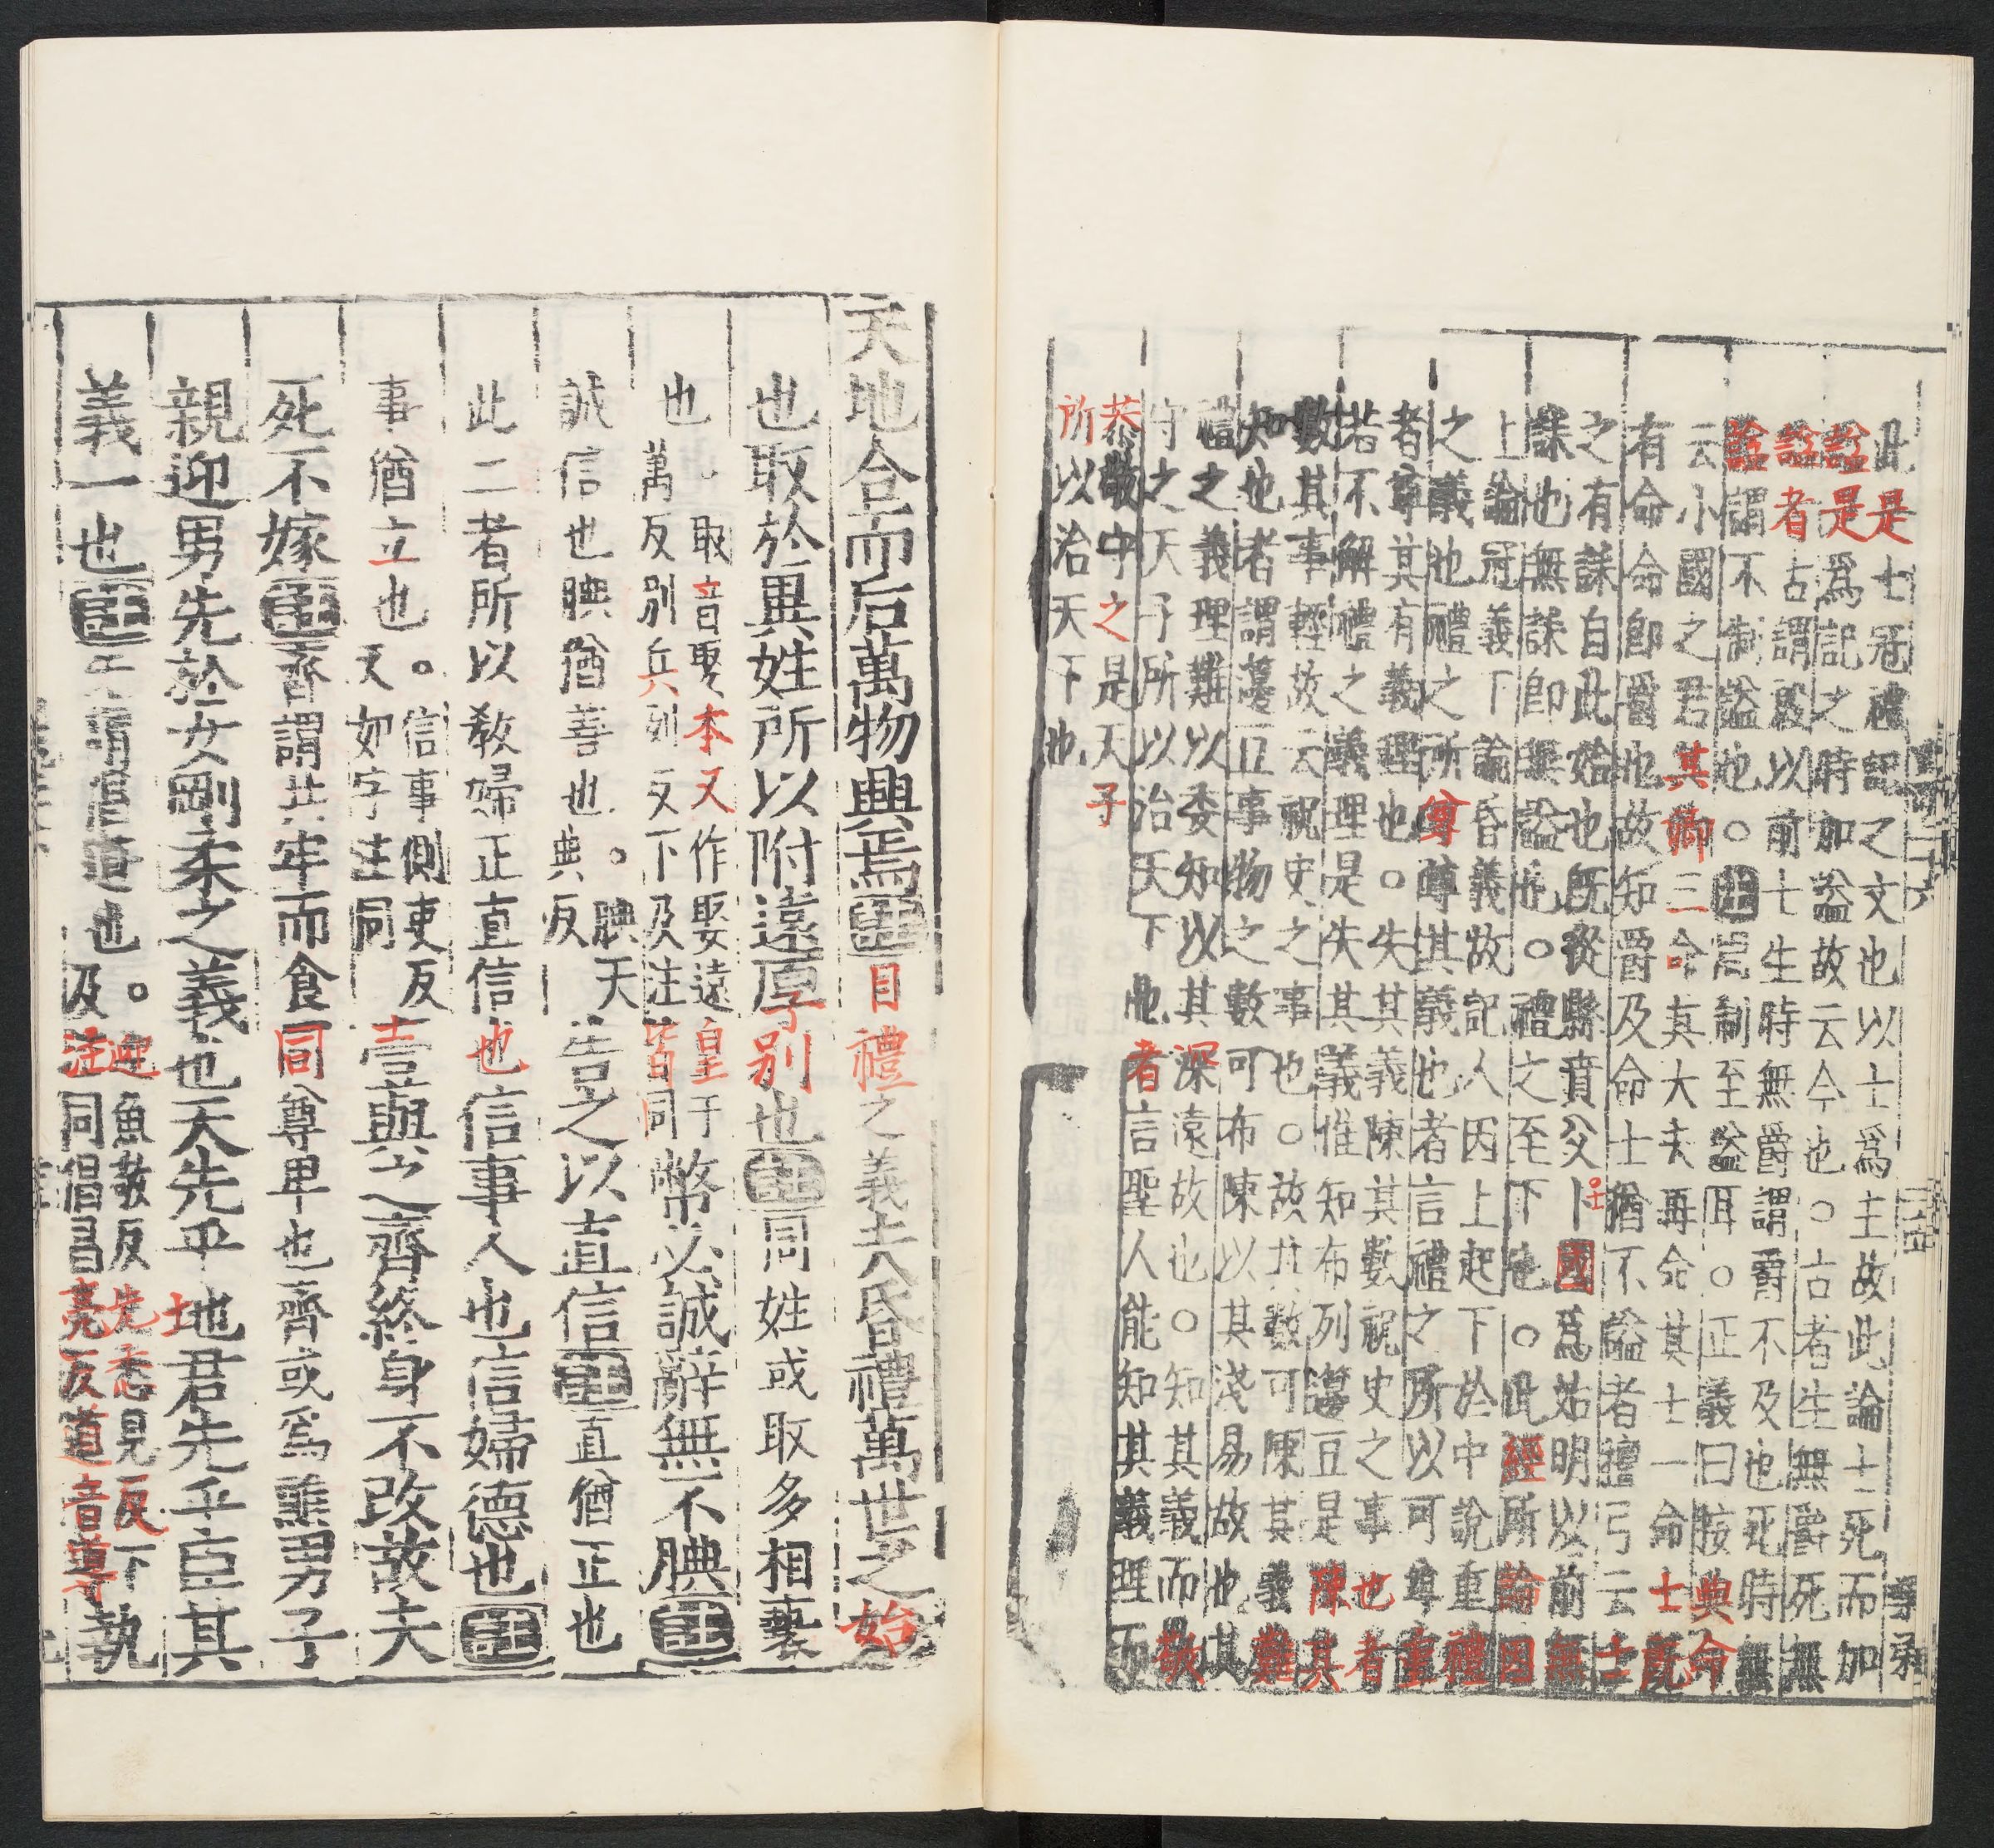 此是士冠禮記之文也以士爲主故此論士死而加
謚是爲記之時加謚故云今也○古者生無爵死無
謚者古謂殷以前士生時無爵謂爵不及也死時無
謚謂不制謚也○注周制至謚耳○正義曰按典命
云小國之君其卿三命其大夫再命其士一命士既
有命命卽爵也故知爵及命士猶不謚者檀弓云士
之有誄自此始也旣從縣賁父卜國爲姑明以前無
誄也無誄卽無謚也○禮之至下也○此經所論因
上論冠義下論昏義故記人因上起下於中說重禮
之義也禮之所尊尊其義也者言禮之所以可尊重
者尊其有義理也○失其義陳其數祝史之事也者
若不解禮之義理是失其義惟知布列籩豆是陳其
數其事輕故云祝史之事也○故其數可陳其義難
知也者謂籩豆事物之數可布陳以其淺易故也其
禮之義理難以委知以其深遠故也○知其義而敬
守之天子所以治天下也者言聖人能知其義理而
恭敬中之是天子
所以治天下也
天地合而后萬物興焉注目禮之義夫昏禮萬世之始
也取於異姓所以附遠厚別也注同姓或取多相褻
也○取音娶本又作娶遠皇于萬反別兵列反下及注皆同幣必誠辭無不腆注
誠信也腆猶善也○腆天典反告之以直信注直猶正也
此二者所以教婦正直信也信事人也信婦德也注
事猶立也○信事側吏反又如字注同壹與之齊終身不改故夫
死不嫁注齊謂共牢而食同尊卑也齊或爲醮男子
親迎男先於女剛柔之義也天先乎地君先乎臣其
義一也注先謂倡道也○迎魚敬反先悉見反下及注同倡昌亮反道音導執